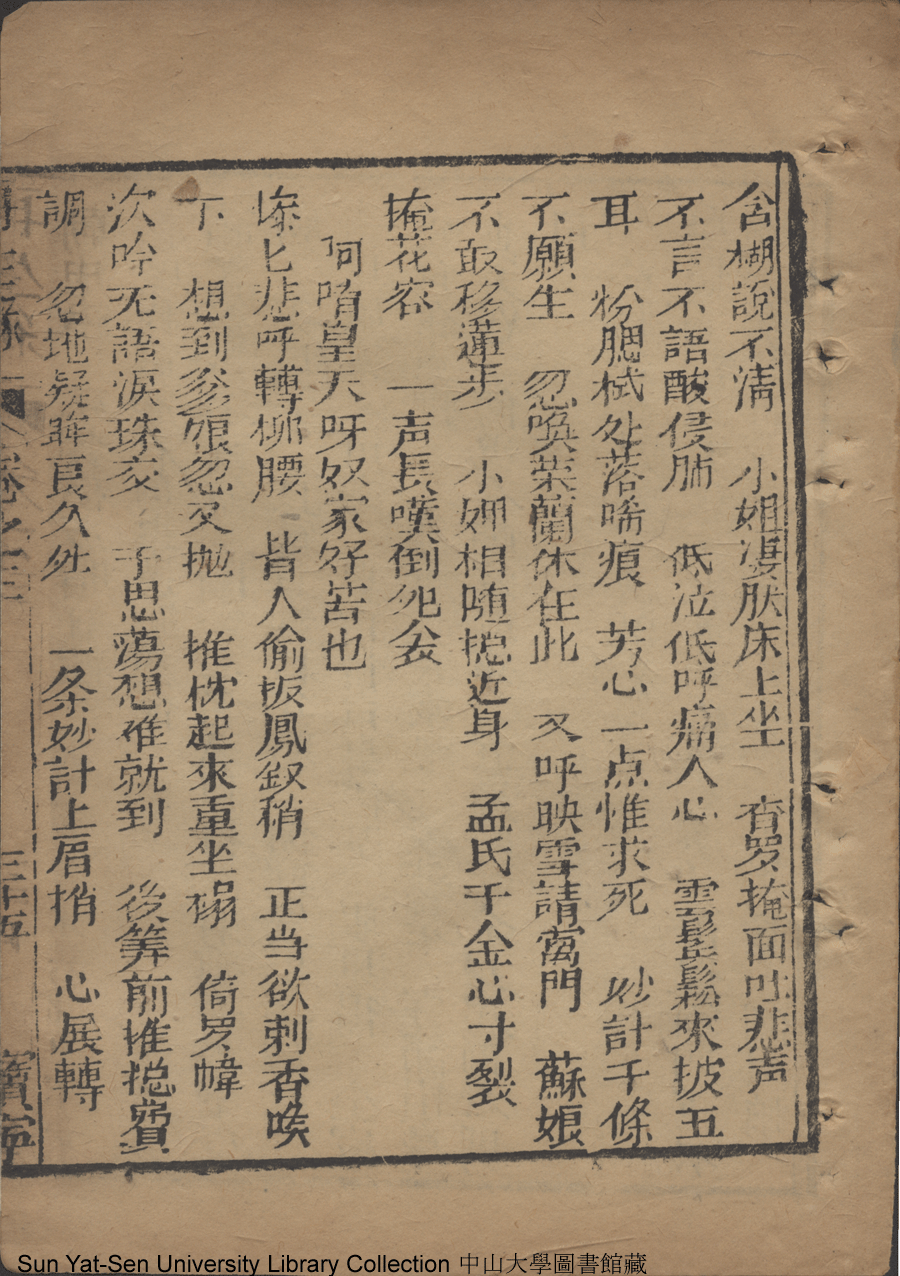 含糊說不清　小姐凄肰床上坐　杳罗掩面吐悲声
不言不語酸侵肺　低泣低呼痛人心　雲鬂鬆鬆來披五
耳　粉腮栻处落啼痕　芳心一点惟求死　妙計千條
不願生　忽喚荣蘭休在此　又呼映雪請窩門　蘇娘
不敢移蓮步　小姐相随挽近身　孟氏千金心寸裂
掩花容　一声長嘆倒犯尖
阿唷皇天呀奴家好苦也
惨匕悲呼轉柳腰　背人偷扳鳳釵稍　正当欲刺香喉
下　想到爹娘忽又抛　推枕起來重坐榻　倚罗幃
次吟无語淚珠交　千思蕩想难就到　後筭前推挽費
調　忽地疑眸良久㸃　一条妙計上眉捎　心展轉
卷之三　三十五　寳寧
Sun Yat-Sen University Library Collection 中山大學圖書館藏